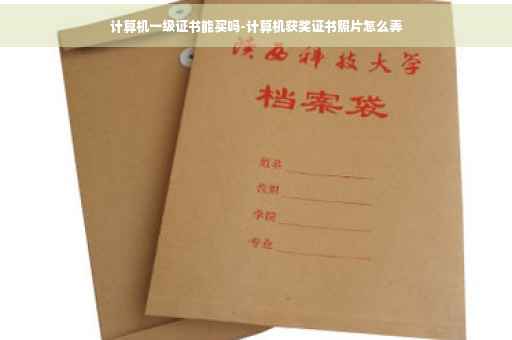 计算机一级证书能买吗-计算机获奖证书照片怎么弄
陕西科技大学
档案袋
姓名
学院
专业